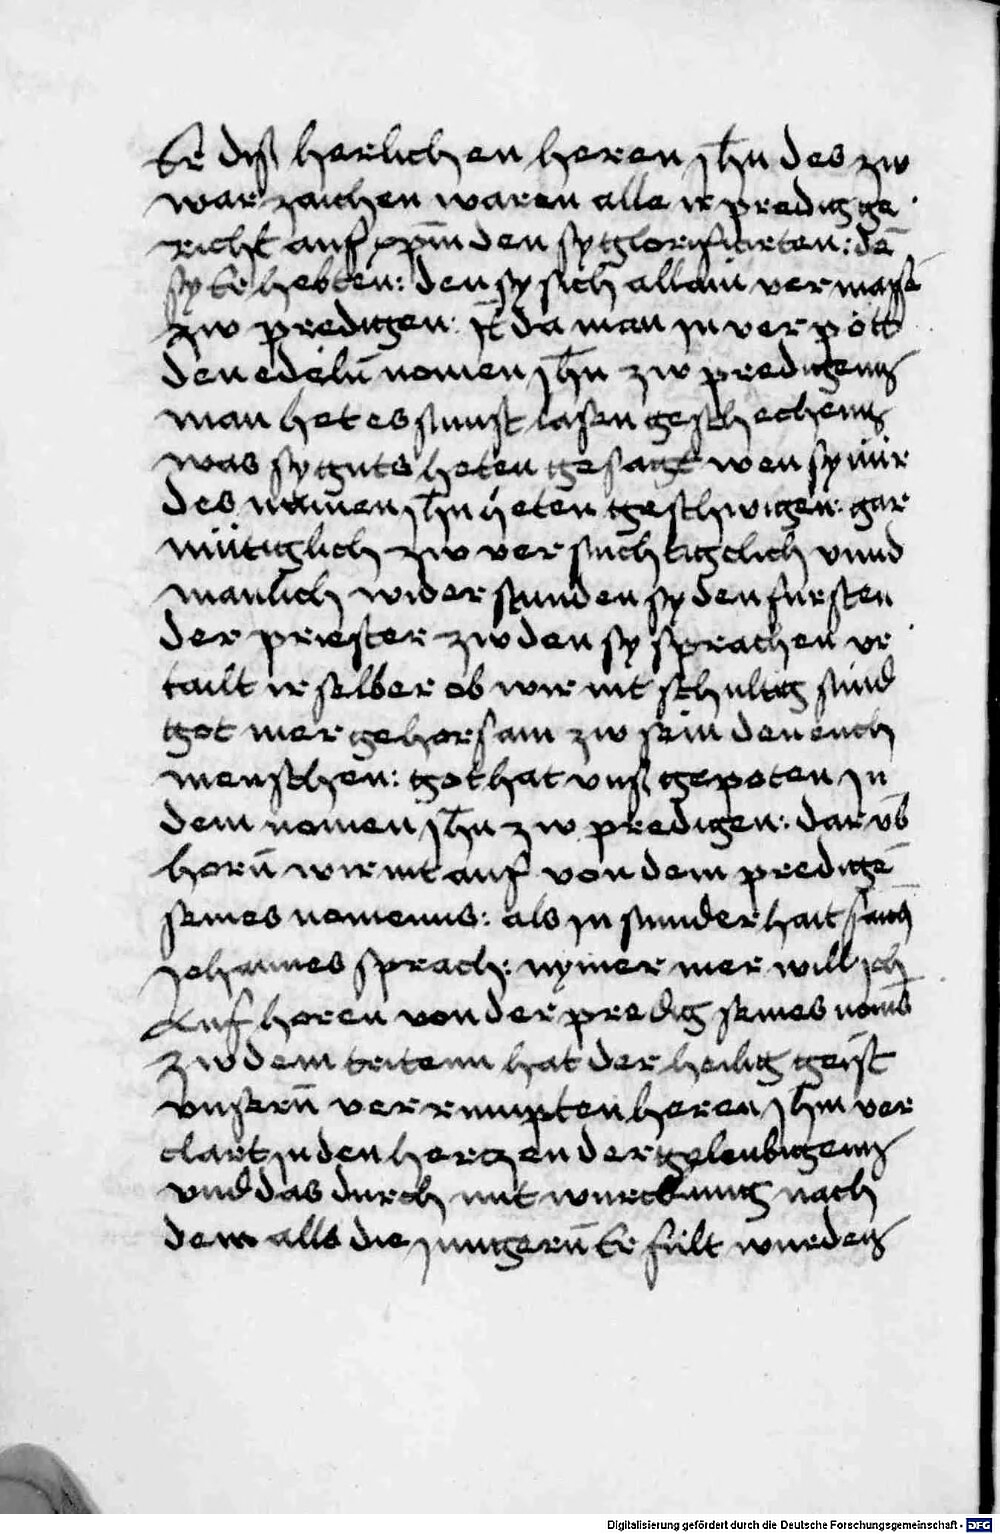 Er diß herlichen heren jhu des zw
war zaichen waren alle ir predig ge
richt auf xpm den sy glorificirten: dē
sy Er hebten: den sy sich allain vermasſē
zw predigen: It da man in verpott
den edelū nomen jhu zw predigenn
man het es sunst lasen geschechenn
was sy guts heten gesagt wen sy nür
des namen jhu heten geschwigen: gar
mütiglich zw versuchtigclich vnnd
manlich widerstunden sy den fürsten
der priester zw den sy sprachen vr
tailt ir selber ob wir nit schultig sind
got mer gehorsam zw sein den euch
menschen: got hat vnß gepoten in
dem nomen jhu zw predigen: dar vb
horn wir nit auf von dem predigē
seines nomenns: als in sunderhait sand
Johannes sprach: nymer mer will ich
Auf horen von der predig seines noms
zw dem tritenn hat der heilig geist
vnßern verrumpten heren jhm ver
clart in den hertzen der gelaubigenn
vnd das durch mit wurckung nach
dem alls die jungern Erfült wurden
Digitalisierung gefördert durch die Deutsche Forschungsgemeinschaft - DFG